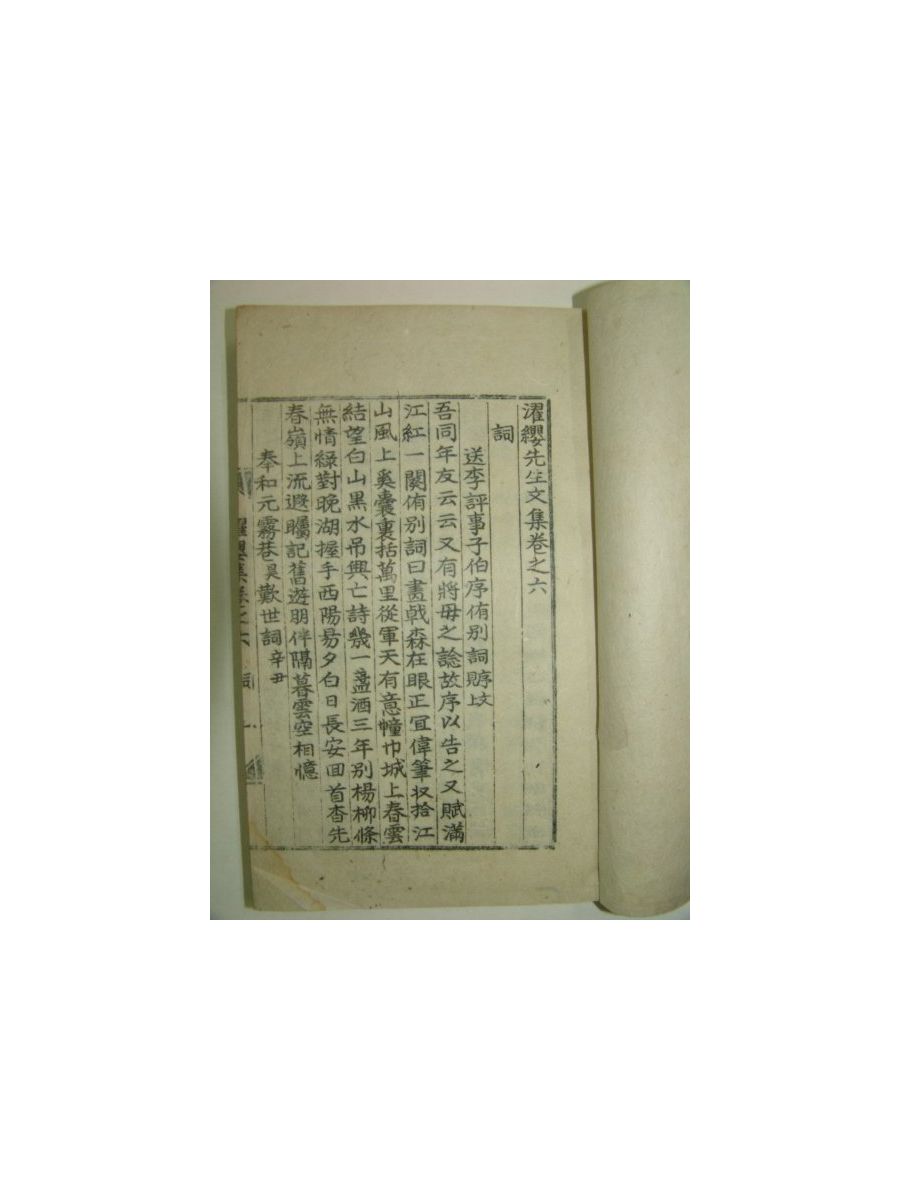 濯纓先生文集卷之六
詞
送李評事子伯序侑別詞賸攴
吾同年友云云又有將毋之諗故序以告之又賦滿
江紅一闋侑別詞曰畵戟森在眼正冝偉筆収拾江
山風上奚囊裏括萬里從軍天有意幢巾城上春雲
結望白山黒水吊興亡詩幾一盞酒三年别楊柳條
無情綠對晚湖握手西陽易夕白日長安回首杳先
春嶺上流遐矚記舊遊朋伴隔暮雲空相憶
奉和元霧巷昊歎世詞 辛丑
濯纓集卷之六 詞 一